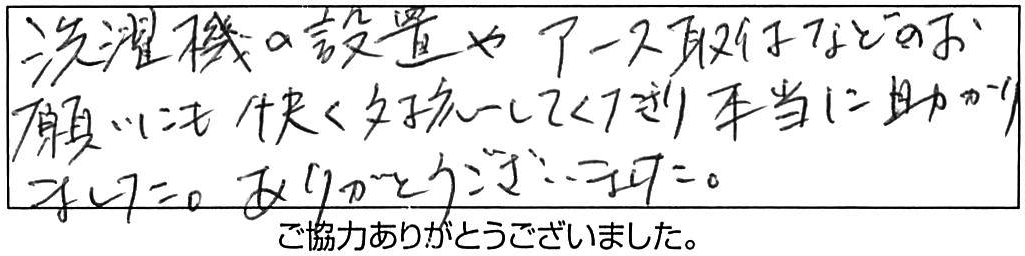 洗濯機の設置や アース取付などのお
願いにも 快く対応してくださり 本当に助かり
ました。ありがとうございました。
ご協力ありがとうございました。